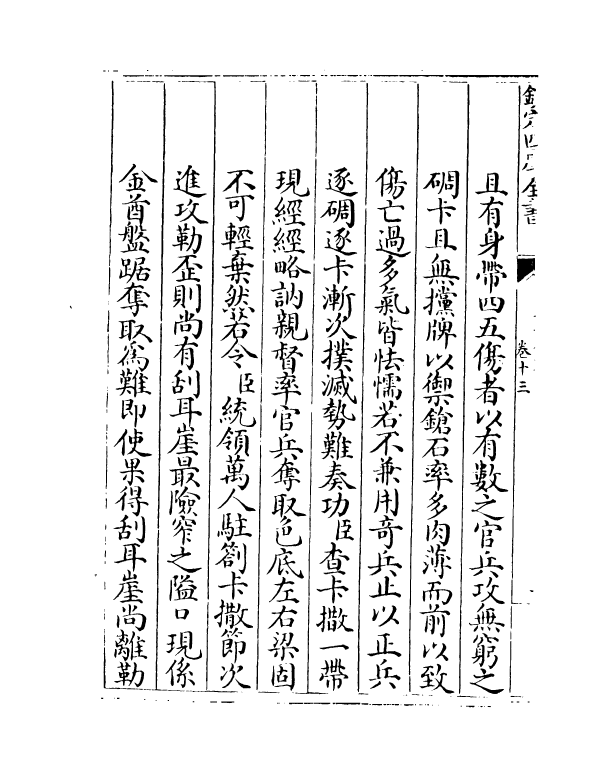 欽定四庫全書
卷十三
且有身帶四五傷者以有數之官兵攻無窮之
碉卡且無攩牌以禦鎗石率多肉薄而前以致
傷亡過多氣皆怯懦若不兼用竒兵止以正兵
逐碉逐卡漸次撲滅勢難奏功臣查卡撒一帶
現經經略訥親督率官兵奪取色底左右梁固
不可輕棄然若令臣統領萬人駐劄卡撒節次
進攻勒歪則尚有刮耳崖最險窄之隘口現係
金酋盤踞奪取為難即使果得刮耳崖尚離勒